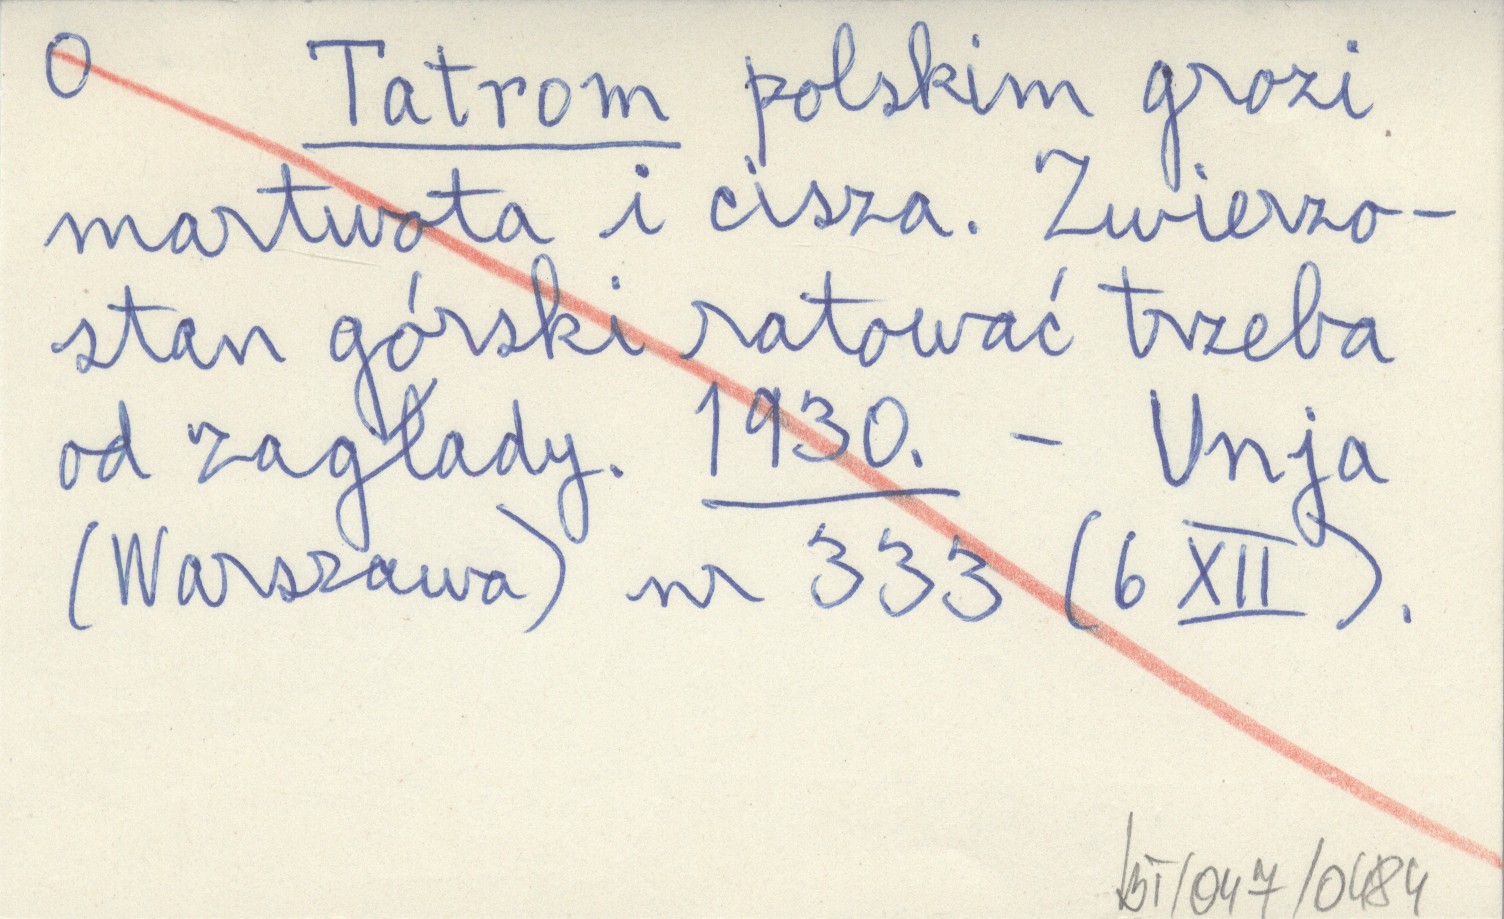 O Tatrom polskim grozi
martwota i cisza. Zwierzo-
stan górski ratować trzeba
od zagłady. 1930. - Unja
(Warszawa) nr 333 (6 XII).
BT/047/0484